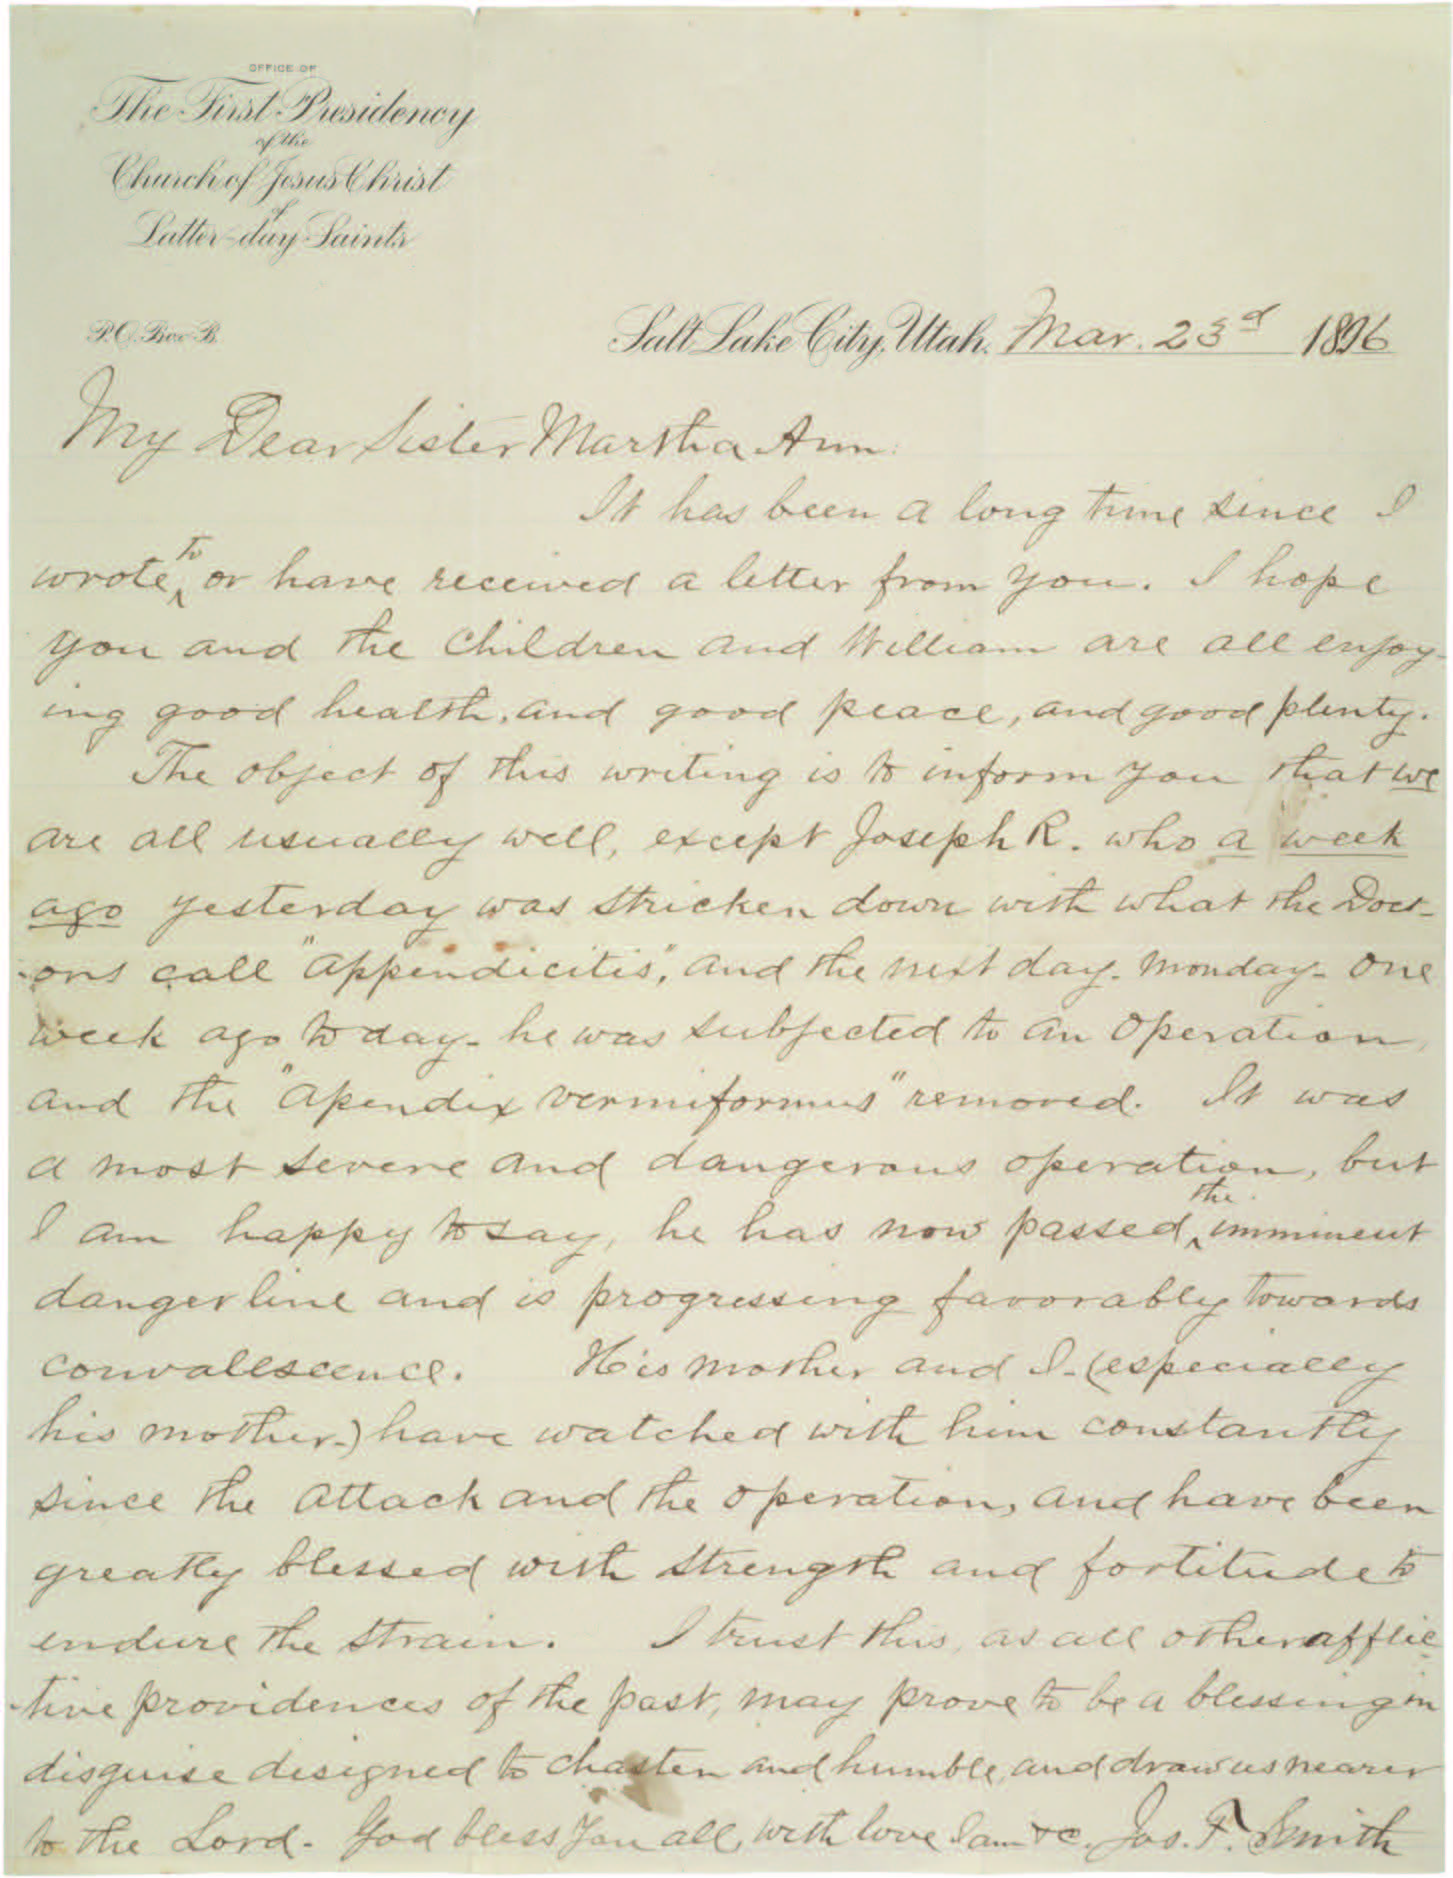 OFFICE OF
The First Presidency
of the
Church of Jesus Christ
of
Latter-day Saints
P.O. Box B.
Salt Lake City, Utah. Mar. 23d 1896
My Dear Sister Martha Ann:
It has been a long time since I
to
wrote ‸ or have received a letter from you. I hope
you and the children and William are all enjoy-
ing good health, and good peace, and good plenty.
The object of this writing is to inform you that we
are all usually well, except Joseph R. who a week
ago yesterday was stricken down with what the Doct-
-ors call "appendicitis", and the next day - monday - one
week ago to day - he was subjected to an operation,
and the "apendix vermiformus" removed. It was
a most severe and dangerous operation, but
the
I am happy to say, he has now passed ‸ imminent
danger line and is progressing favorably towards
convalescence. His mother and I - (especially
his mother -) have watched with him constantly
since the attack and the operation, and have been
greatly blessed with strength and fortitude to
endure the strain. I trust this, as all other afflic-
-tive providences of the past, may prove to be a blessing in
disguise designed to chasten and humble, and draw us nearer
to the Lord. God bless you all, with love I am &c. Jos. F. Smith